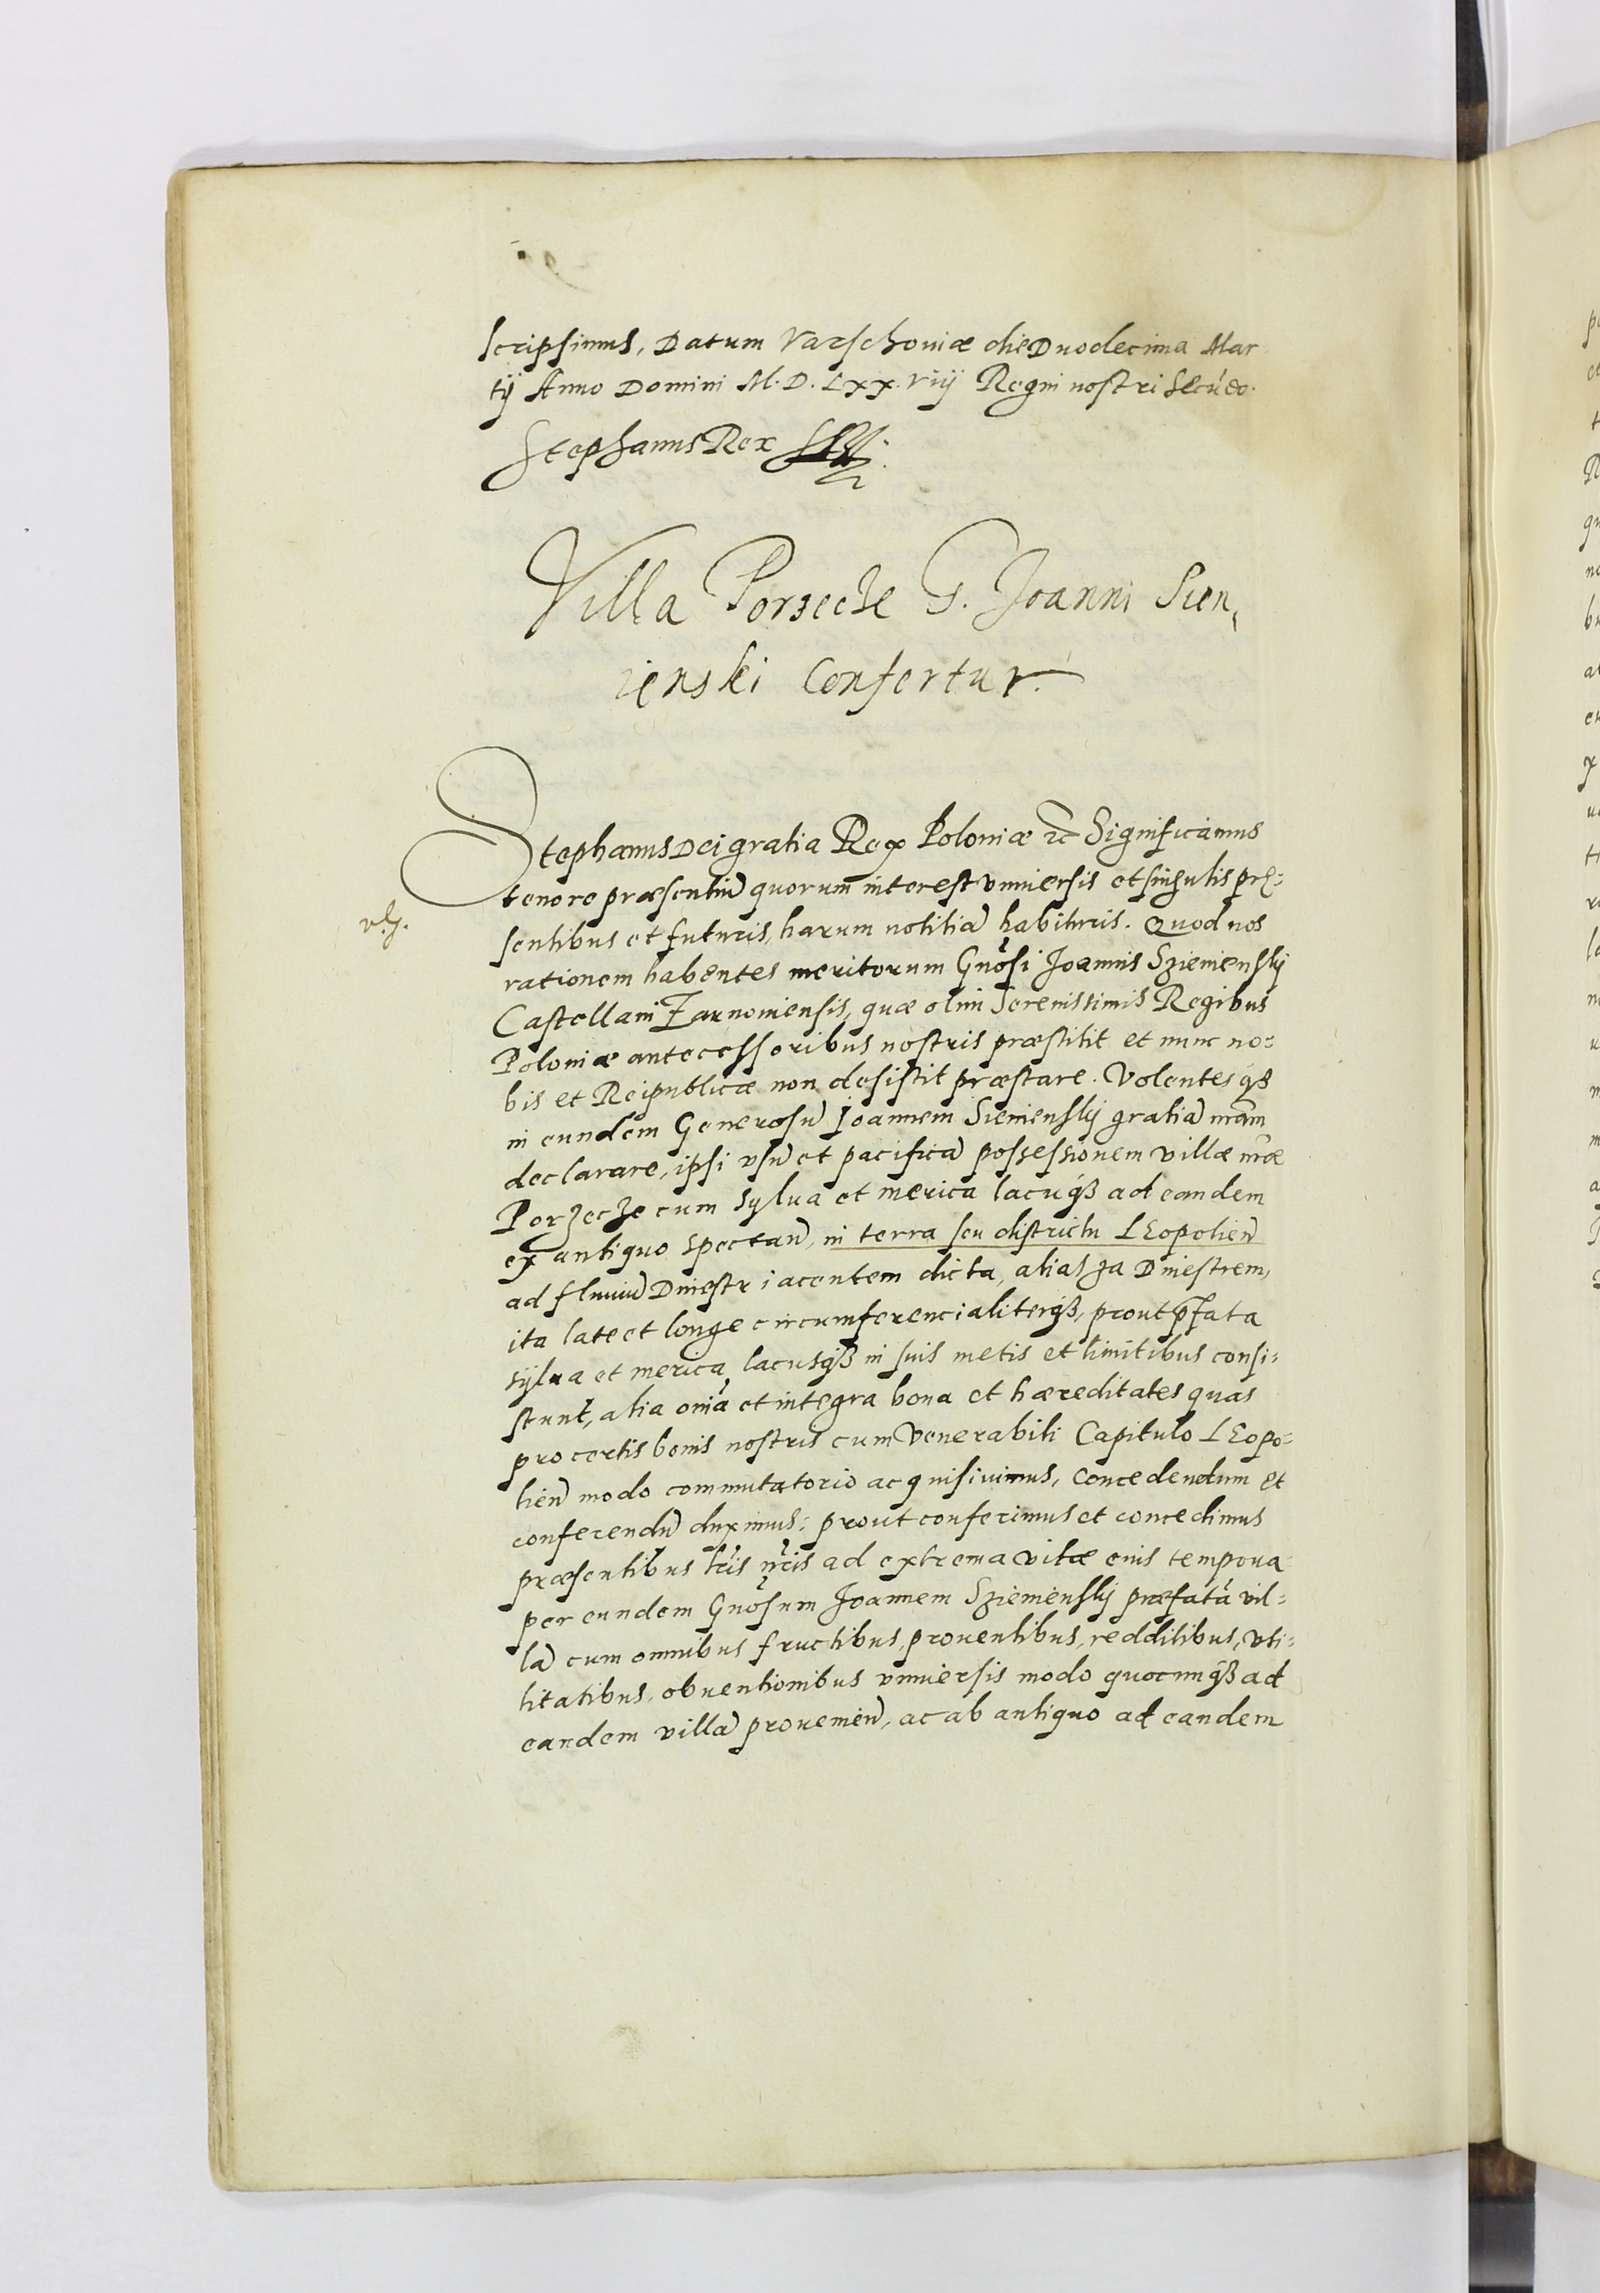 scripsimus, Datum Varschoviæ die Duodecima Mar
tÿ Anno Domini M. D. Lxx. viij Regni nostri Secúdo.
Stephanus Rex
Villa Porzecze G. Joanni Sien,
ienski Confertur.
Stephanus Dei gratia Rex Poloniæ &c Significamus
tenore præsentiũ quorum interest vniuersis et singulis prę:
sentibus et futuris, harum notitiã habituris. Quod nos
rationem habentes meritorum Gnõsi Joannis Sziemienskÿ
Castellani Żarnoviensis, quæ olim Serenissimis Regibus
Poloniæ antecessoribus nostris præstitit et nunc no:
bis et Reipublicæ non desistit præstare. Volentesqȝ
in eundem Generosũ Joannem Siemienskÿ gratiã nrãm
declarare, ipsi vsũ et pacificã possessionem villæ nrõe
Porzecze cum sylua et merica lacuqȝ ad eandem
ex antiquo spectañ, in terra seu districtu LEopolieñ
ad fluuiũ Dniestr iacentem dicta, alias za Dniestrem,
ita late et longe circumferencialiterqȝ, prout p̃fata
sÿlua et merica, lacusqȝ in suis metis et limitibus consi:
stunt, alia oniã et integra bona et hæreditates quas
pro certis bonis nostris cum Venerabili Capitulo LEopo:
lieñ modo commutatorio acquisiuimus, Concedendum et
conferendũ duximus: prout conferimus et concedimus
præsentibus lr̃is nr̃is ad extrema vitæ eius tempora
per eundem Gnõsum Joannem Sziemienskÿ præfatã vil:
lã cum omnibus fructibus, prouentibus, redditibus, vti:
litatibus, obuentionibus vniuersis modo quocunqȝ ad
eandem villã proueniẽn, ac ab antiquo ad eandem